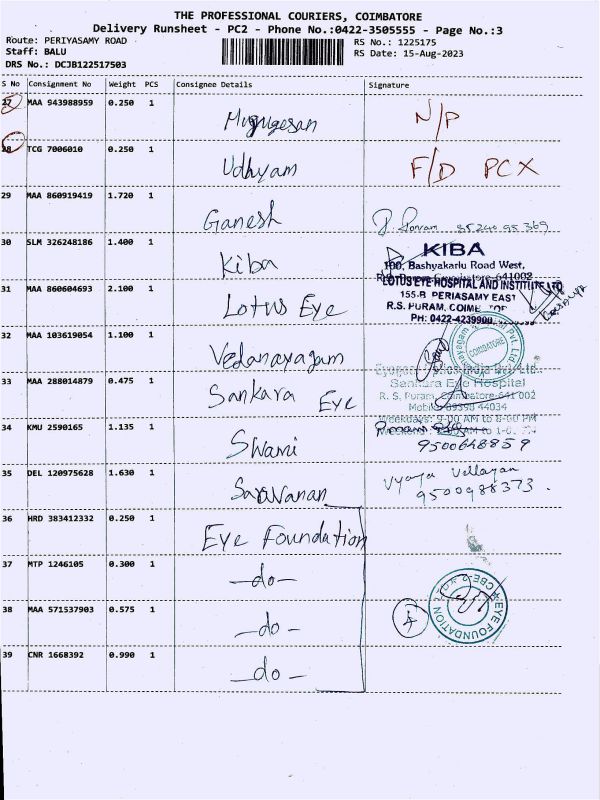 THE PROFESSIONAL COURIERS, COIMBATORE
Delivery Runsheet - PC2 - Phone No.:0422-3505555 - Page No.:3
Route: PERIYASAMY ROAD RS No.: 1225175
Staff: BALU RS Date: 15-Aug-2023
DRS No.: DCJB122517503
S No Consignment No Weight PCS Consignee Details Signature
27 MAA 943988959 0.250 1 Murugesan N/P
28 TCG 7006010 0.250 1 Udhyam F/D PCX
29 MAA 860919419 1.720 1 Ganesh
30 SLM 326248186 1.400 1 Kiba
KIBA
100, Bashyakarlu Road West,
31 MAA 860604693 2.100 1 Lotus Eye
LOTUS EYE HOSPITAL AND INSTITUTE LTD
155-B PERIASAMY EAST
R.S. PURAM, COIMB
PH: 0422-4239900
32 MAA 103619054 1.100 1 Vedanayagam
COIMBATORE
33 MAA 288014879 0.475 1 Sankara Eye
Sankara Eye Hospital
R. S. Puram, Coimbatore-641 002
Mobile 89398 44034
Weekdays: 9-00 AM to 8-00 PM
34 KMU 2590165 1.135 1 Swami 9500648859
35 DEL 120975628 1.630 1 Saravanan Vyaya Vellayan
9500988373.
36 HRD 383412332 0.250 1 Eye Foundation
37 MTP 1246105 0.300 1 -do-
38 MAA 571537903 0.575 1 -do-
EYE FOUNDATION
39 CNR 1668392 0.990 1 -do-